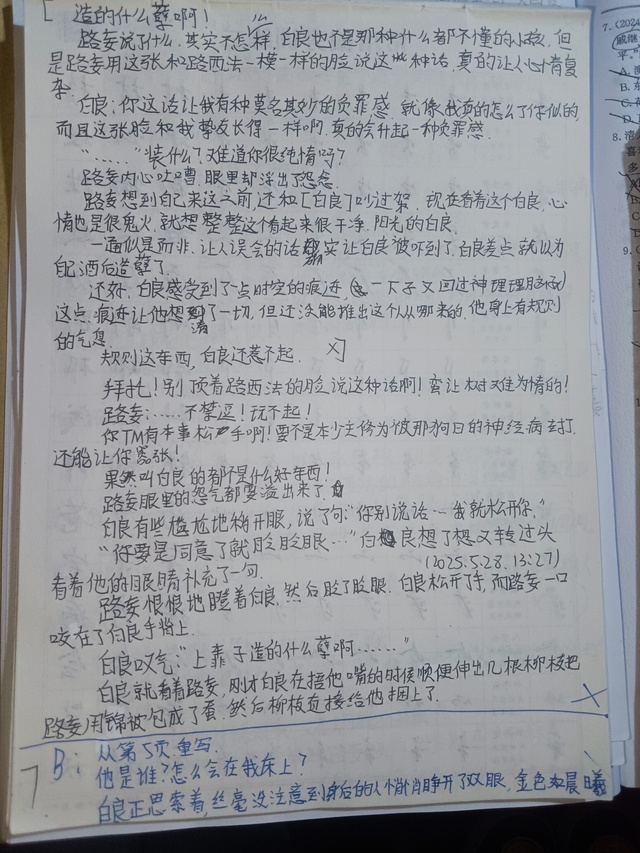 造的什么孽啊！
路委说了什么.其实不怎么样,白良也不是那种什么都不懂的小孩,但
是路委用这张和路西法一模一样的脸说这些种话,真的让人心情复
杂.
白良:你这话让我有种莫名其妙的负罪感.就像我真的怎么了你似的,
而且这张脸和我挚友长得一样啊.真的会升起一种负罪感.
“……”装什么?难道你很纯情吗?
路委内心吐嘈,眼里却浮出了怨念.
路委想到自己来这之前,还和[白良]吵过架.现在看着这个白良,心
情也是很鬼火,就想整整这个看起来很干净,阳光的白良.
一通似是而非.让人误会的话 实让白良被吓到了.白良差点就以为
自己酒后造孽了.
还好.白良感受到了一点时空的痕迹, 一下子又回过神理理脑
这点痕迹让他想清了一切,但还没能推出这个人从哪来的,他身上有规则
的气息
规则这东西,白良还惹不起.
拜托!别顶着路西法的脸说这种话啊!蛮让树难为情的!
路委:……不禁逗!玩不起!
你TM有本事松手啊!要不是本少主修为被那狗日的神经病封
还能让你嚣张!
果然叫白良的都不是什么好东西!
路委眼里的怨气都要溢出来了.
白良有些尴尬地稍开眼,说了句:“你别说话…我就松开你.”
“你要是同意了就眨眨眼…”白良想了想又转过头
(2025.5.28. 13:27)
看着他的眼睛补充了一句.
路委恨恨地瞪着白良.然后眨了眨眼.白良松开了手,而路委一口
咬在了白良手指上.
白良叹气:“上辈子造的什么孽啊……”
白良就看着路委,刚才白良在捂他嘴的时候顺便伸出几根柳枝把
路委用锦被包成了蛋.然后柳枝直接给他捆上了.
B: 从第5页重写.
他是谁?怎么会在我床上?
白良正思索着,丝毫没注意到身后的人悄悄睁开了双眼,金色如晨曦
7.(2024
A.
B.
C.
D.
8.
9.(